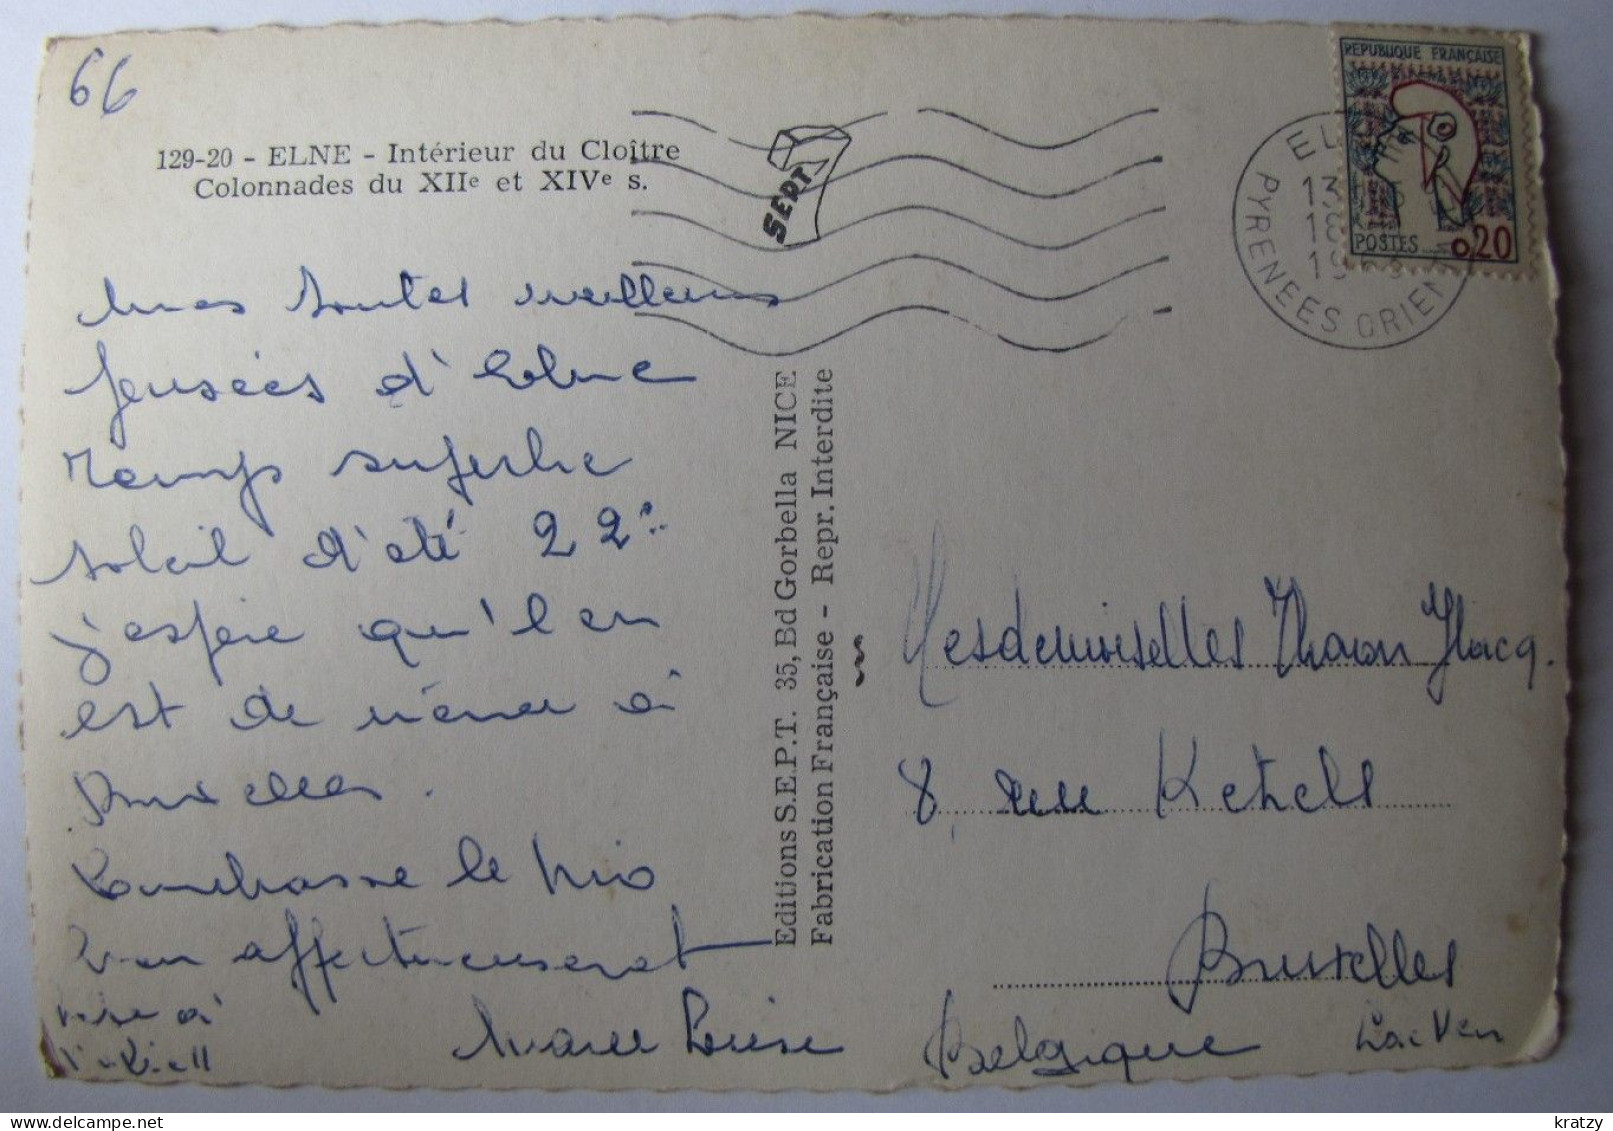 66
129-20 - ELNE - Intérieur du Cloître
Colonnades du XIIe et XIVe s.
SEPT
REPUBLIQUE FRANÇAISE
POSTES
0,20
PYRENEES ORIEN
Mes toutes meilleures
pensées d'Elne
Temps superbe
soleil d'été 22°
j'espère qu'il en
est de même à
Bruxelles.
Embrasse le trio
affectueusement
Marie Louise
Editions S.E.P.T. 35, Bd Gorbella NICE
Fabrication Française - Repr. Interdite
Mesdemoiselles
8, rue Ketels
Bruxelles
Belgique Laeken
kratzy